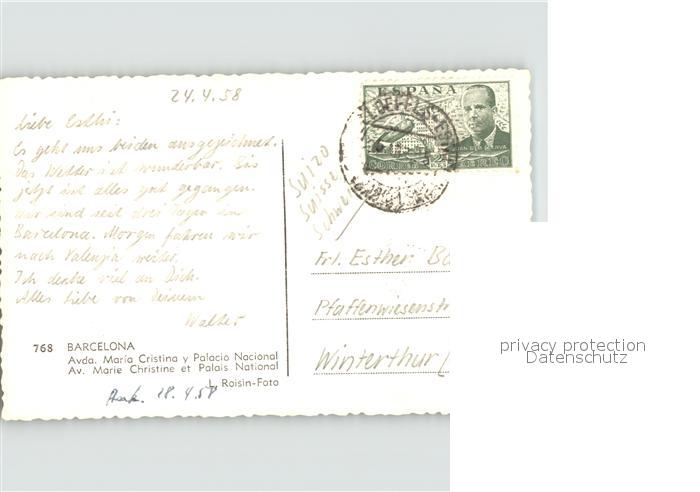 24.4.58
Liebe Esthi:
Es geht uns beiden ausgezeichnet.
Das Wetter ist wunderbar. Bis
jetzt ist alles gut gegangen.
Wir sind seit drei Tagen in
Barcelona. Morgen fahren wir
nach Valenzia weiter.
Ich denke viel an Dich.
Alles liebe von Deinem
Walter
768 BARCELONA
Avda. María Cristina y Palacio Nacional
Av. Marie Christine et Palais National
L. Roisin-Foto
28.4.58
Suizo
Suisse
ESPAÑA
CORREO
Frl. Esther
Winterthur
privacy protection
Datenschutz